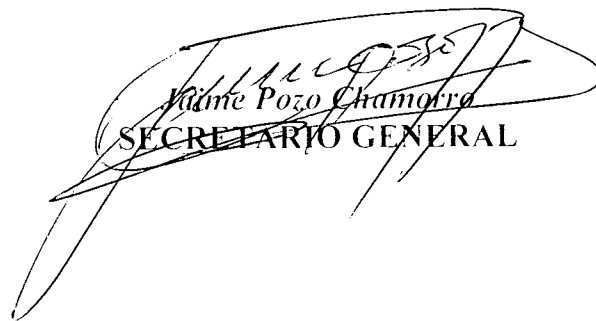 Jaime Pozo Chamorro
SECRETARIO GENERAL